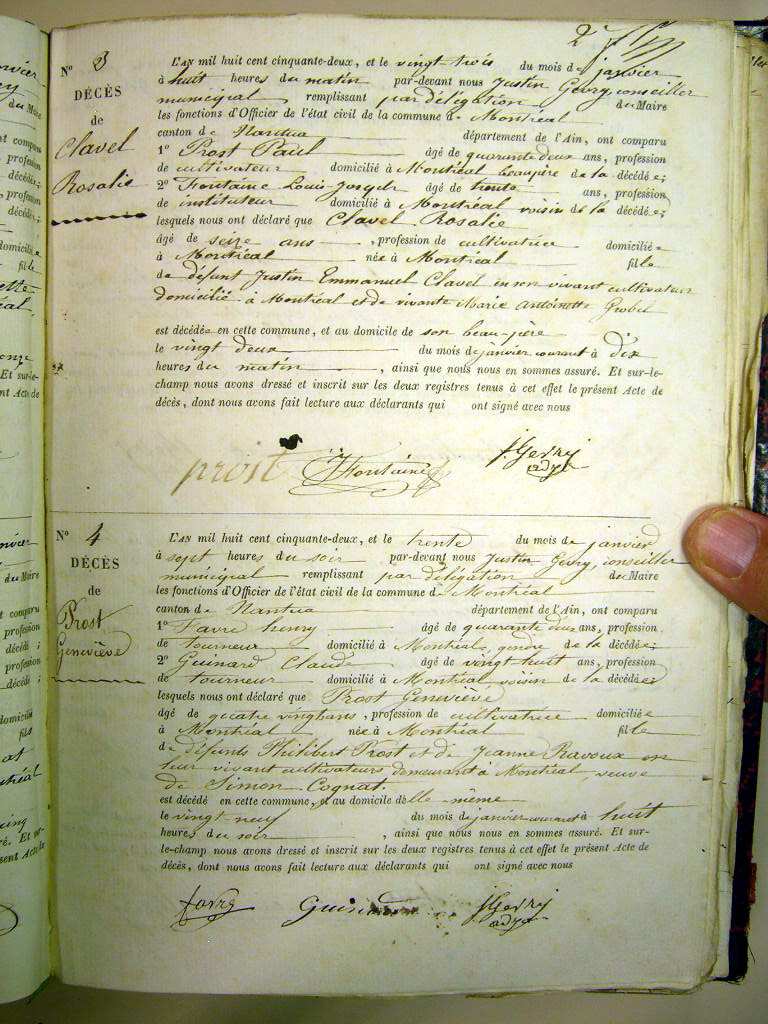 2
N° 3
DÉCÈS
de
Clavel
Rosalie
L'AN mil huit cent cinquante-deux, et le vingt trois du mois de janvier
à huit heures du matin par-devant nous Justin Gevry, conseiller
municipal remplissant par délégation du Maire
les fonctions d'Officier de l'état civil de la commune de Montréal
canton de Nantua département de l'Ain, ont comparu
1° Prost Paul âgé de quarante deux ans, profession
de cultivateur domicilié à Montréal beaupère de la décédée;
2° Fontaine Louis Joseph âgé de trente ans, profession
de instituteur domicilié à Montréal voisin de la décédée;
lesquels nous ont déclaré que Clavel Rosalie
âgé de seize ans, profession de cultivatrice domiciliée
à Montréal née à Montréal fille
de défunt Justin Emmanuel Clavel en son vivant cultivateur
domicilié à Montréal et de vivante Marie Antoinette
est décédée en cette commune, et au domicile de son beau-père
le vingt deux du mois de janvier courant à dix
heures du matin, ainsi que nous nous en sommes assuré. Et sur-le-
champ nous avons dressé et inscrit sur les deux registres tenus à cet effet le présent Acte de
décès, dont nous avons fait lecture aux déclarants qui ont signé avec nous
prost JFontaine J. Gevry
adjt
N° 4
DÉCÈS
de
Prost
Geneviève
L'AN mil huit cent cinquante-deux, et le trente du mois de janvier
à sept heures du soir par-devant nous Justin Gevry, conseiller
municipal remplissant par délégation du Maire
les fonctions d'Officier de l'état civil de la commune de Montréal
canton de Nantua département de l'Ain, ont comparu
1° Favre henry âgé de quarante deux ans, profession
de tourneur domicilié à Montréal, gendre de la décédée;
2° Guinard Claude âgé de vingt huit ans, profession
de tourneur domicilié à Montréal voisin de la décédée;
lesquels nous ont déclaré que Prost Geneviève
âgé de quatre vingt ans, profession de cultivatrice domiciliée
à Montréal née à Montréal fille
de défunts Philibert Prost et de Jeanne Ravoux en
leur vivant cultivateurs demeurant à Montréal veuve
de Simon Cognat.
est décédé en cette commune, et au domicile d'elle même
le vingt neuf du mois de janvier courant à huit
heures du soir, ainsi que nous nous en sommes assuré. Et sur-
le-champ nous avons dressé et inscrit sur les deux registres tenus à cet effet le présent Acte de
décès, dont nous avons fait lecture aux déclarants qui ont signé avec nous
favre Guinard J. Gevry
adjt